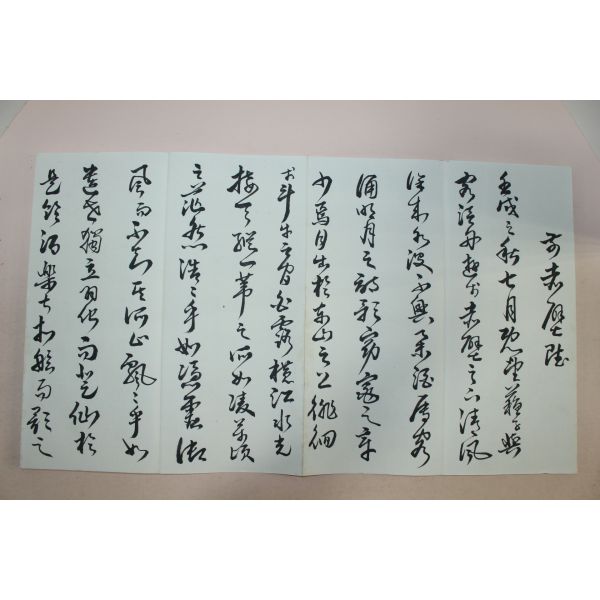 前赤壁賦
壬戌之秋七月既望蘇子與
客泛舟遊於赤壁之下清風
徐來水波不興擧酒屬客
誦明月之詩歌窈窕之章
少焉月出於東山之上徘徊
於斗牛之間白露橫江水光
接天縱一葦之所如凌萬頃
之茫然浩〻乎如憑虛御
風而不知其所止飄〻乎如
遺世獨立羽化而登仙於
是飮酒樂甚扣舷而歌之